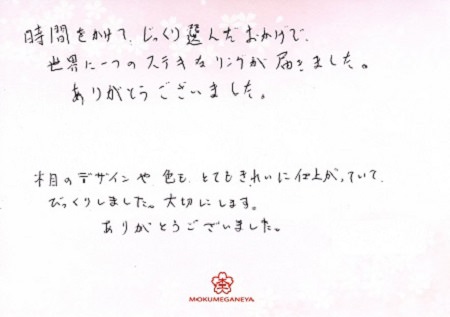 時間をかけて、じっくり選んだおかげで、
世界に一つのステキなリングが届きました。
ありがとうございました。
木目のデザインや、色も、とてもきれいに仕上がっていて、
びっくりしました。大切にします。
ありがとうございました。
MOKUMEGANEYA